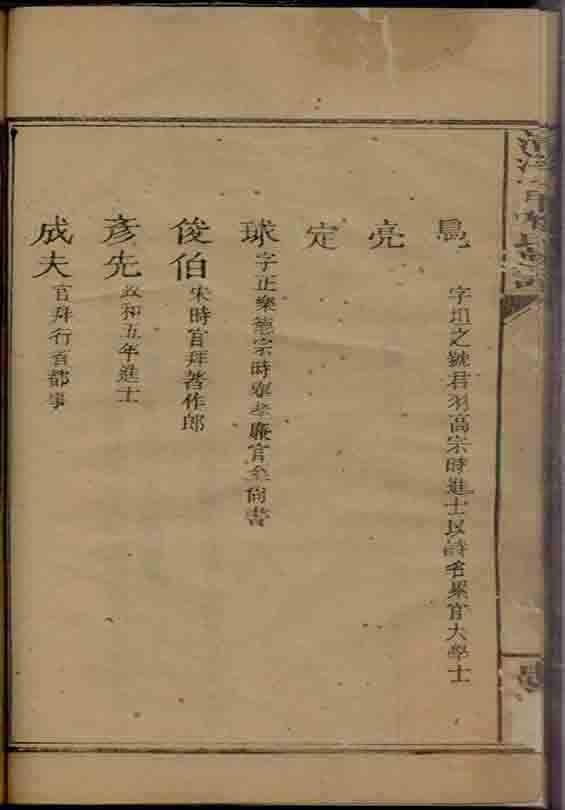 字坦之號君羽高宗時進士以詩名累官大學士
亮
定
球 字正樂德宗時舉孝廉官至尙書
俊伯 宋時官拜著作郎
彥先 政和五年進士
成夫 官拜行省都事